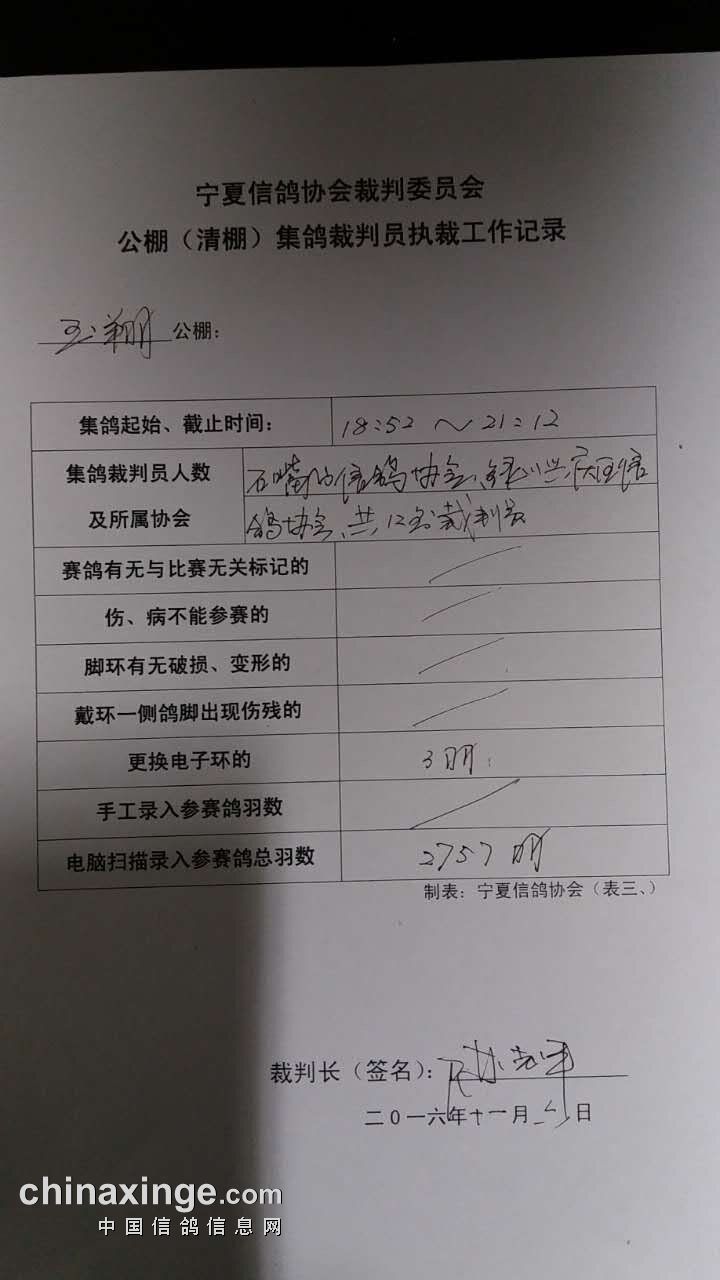 宁夏信鸽协会裁判委员会
公棚（清棚）集鸽裁判员执裁工作记录
玉翔 公棚：
集鸽起始、截止时间： 18:52 ～ 21:12
集鸽裁判员人数 石嘴山信鸽协会、银川兴庆区信
及所属协会 鸽协会、共12名裁判员
赛鸽有无与比赛无关标记的
伤、病不能参赛的
脚环有无破损、变形的
戴环一侧鸽脚出现伤残的
更换电子环的 3羽
手工录入参赛鸽羽数
电脑扫描录入参赛鸽总羽数 2757 羽
制表：宁夏信鸽协会（表三、）
裁判长（签名）：
二0一六年十一月 日
chinaxinge.com
中国信鸽信息网